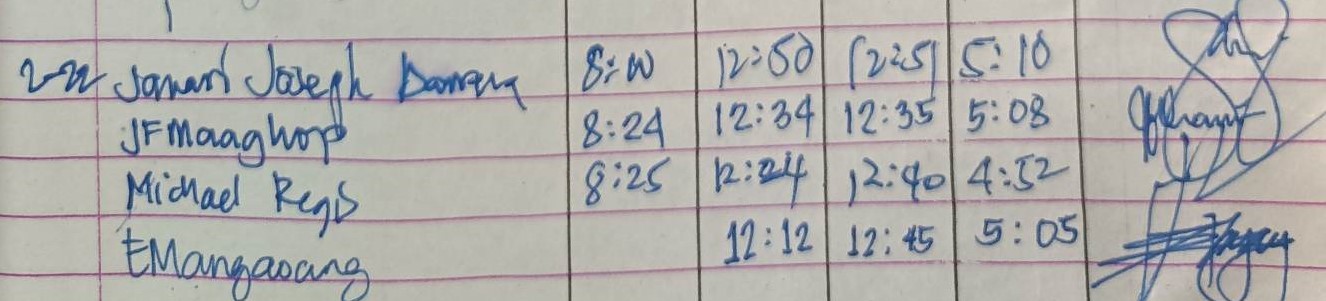 2-22 Joseph 8:10 12:50 12:51 5:10
JFMaaghop 8:24 12:34 12:35 5:08
Michael Regis 8:25 12:24 12:40 4:52
EMangaoang 12:12 12:45 5:05